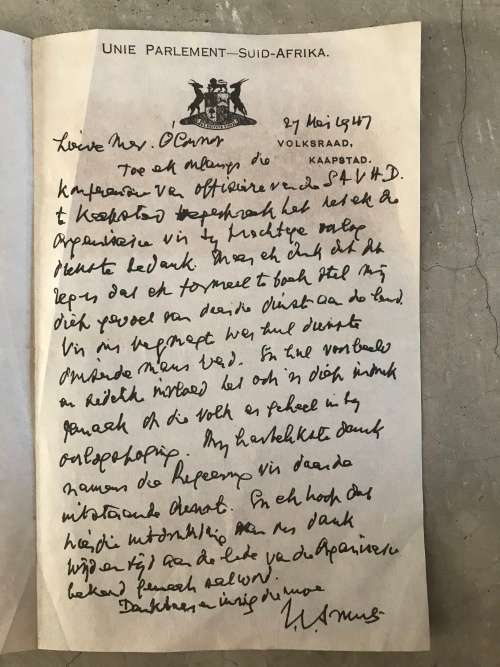 UNIE PARLEMENT—SUID-AFRIKA.
27 Mei 1947
VOLKSRAAD,
KAAPSTAD.
Liewe Mev. O'Connor
Toe ek onlangs die
Konferensie van offisiere van die S.A.V.H.D.
te Kaapstad toegespreek het het ek die
organisasie vir sy pragtige oorlog
dienste bedank. Maar ek dink dit is
reg dat ek formeel te boek stel my
diep gevoel van daardie dienst aan die land.
Vir ons vegmagte was hul dienste
duisende mans werd. En hul voorbeeld
en sedelike invloed het ook 'n diep indruk
gemaak op die volk as geheel in sy
oorlogspoging. My hartelikste dank
namens die Regeering vir daardie
uitstaande dienst. En ek hoop dat
hierdie uitdrukking van ons dank
wyd en syd aan die lede van die Organisasie
bekend gemaak sal word.
Dankbaar en innig die uwe
J.C. Smuts